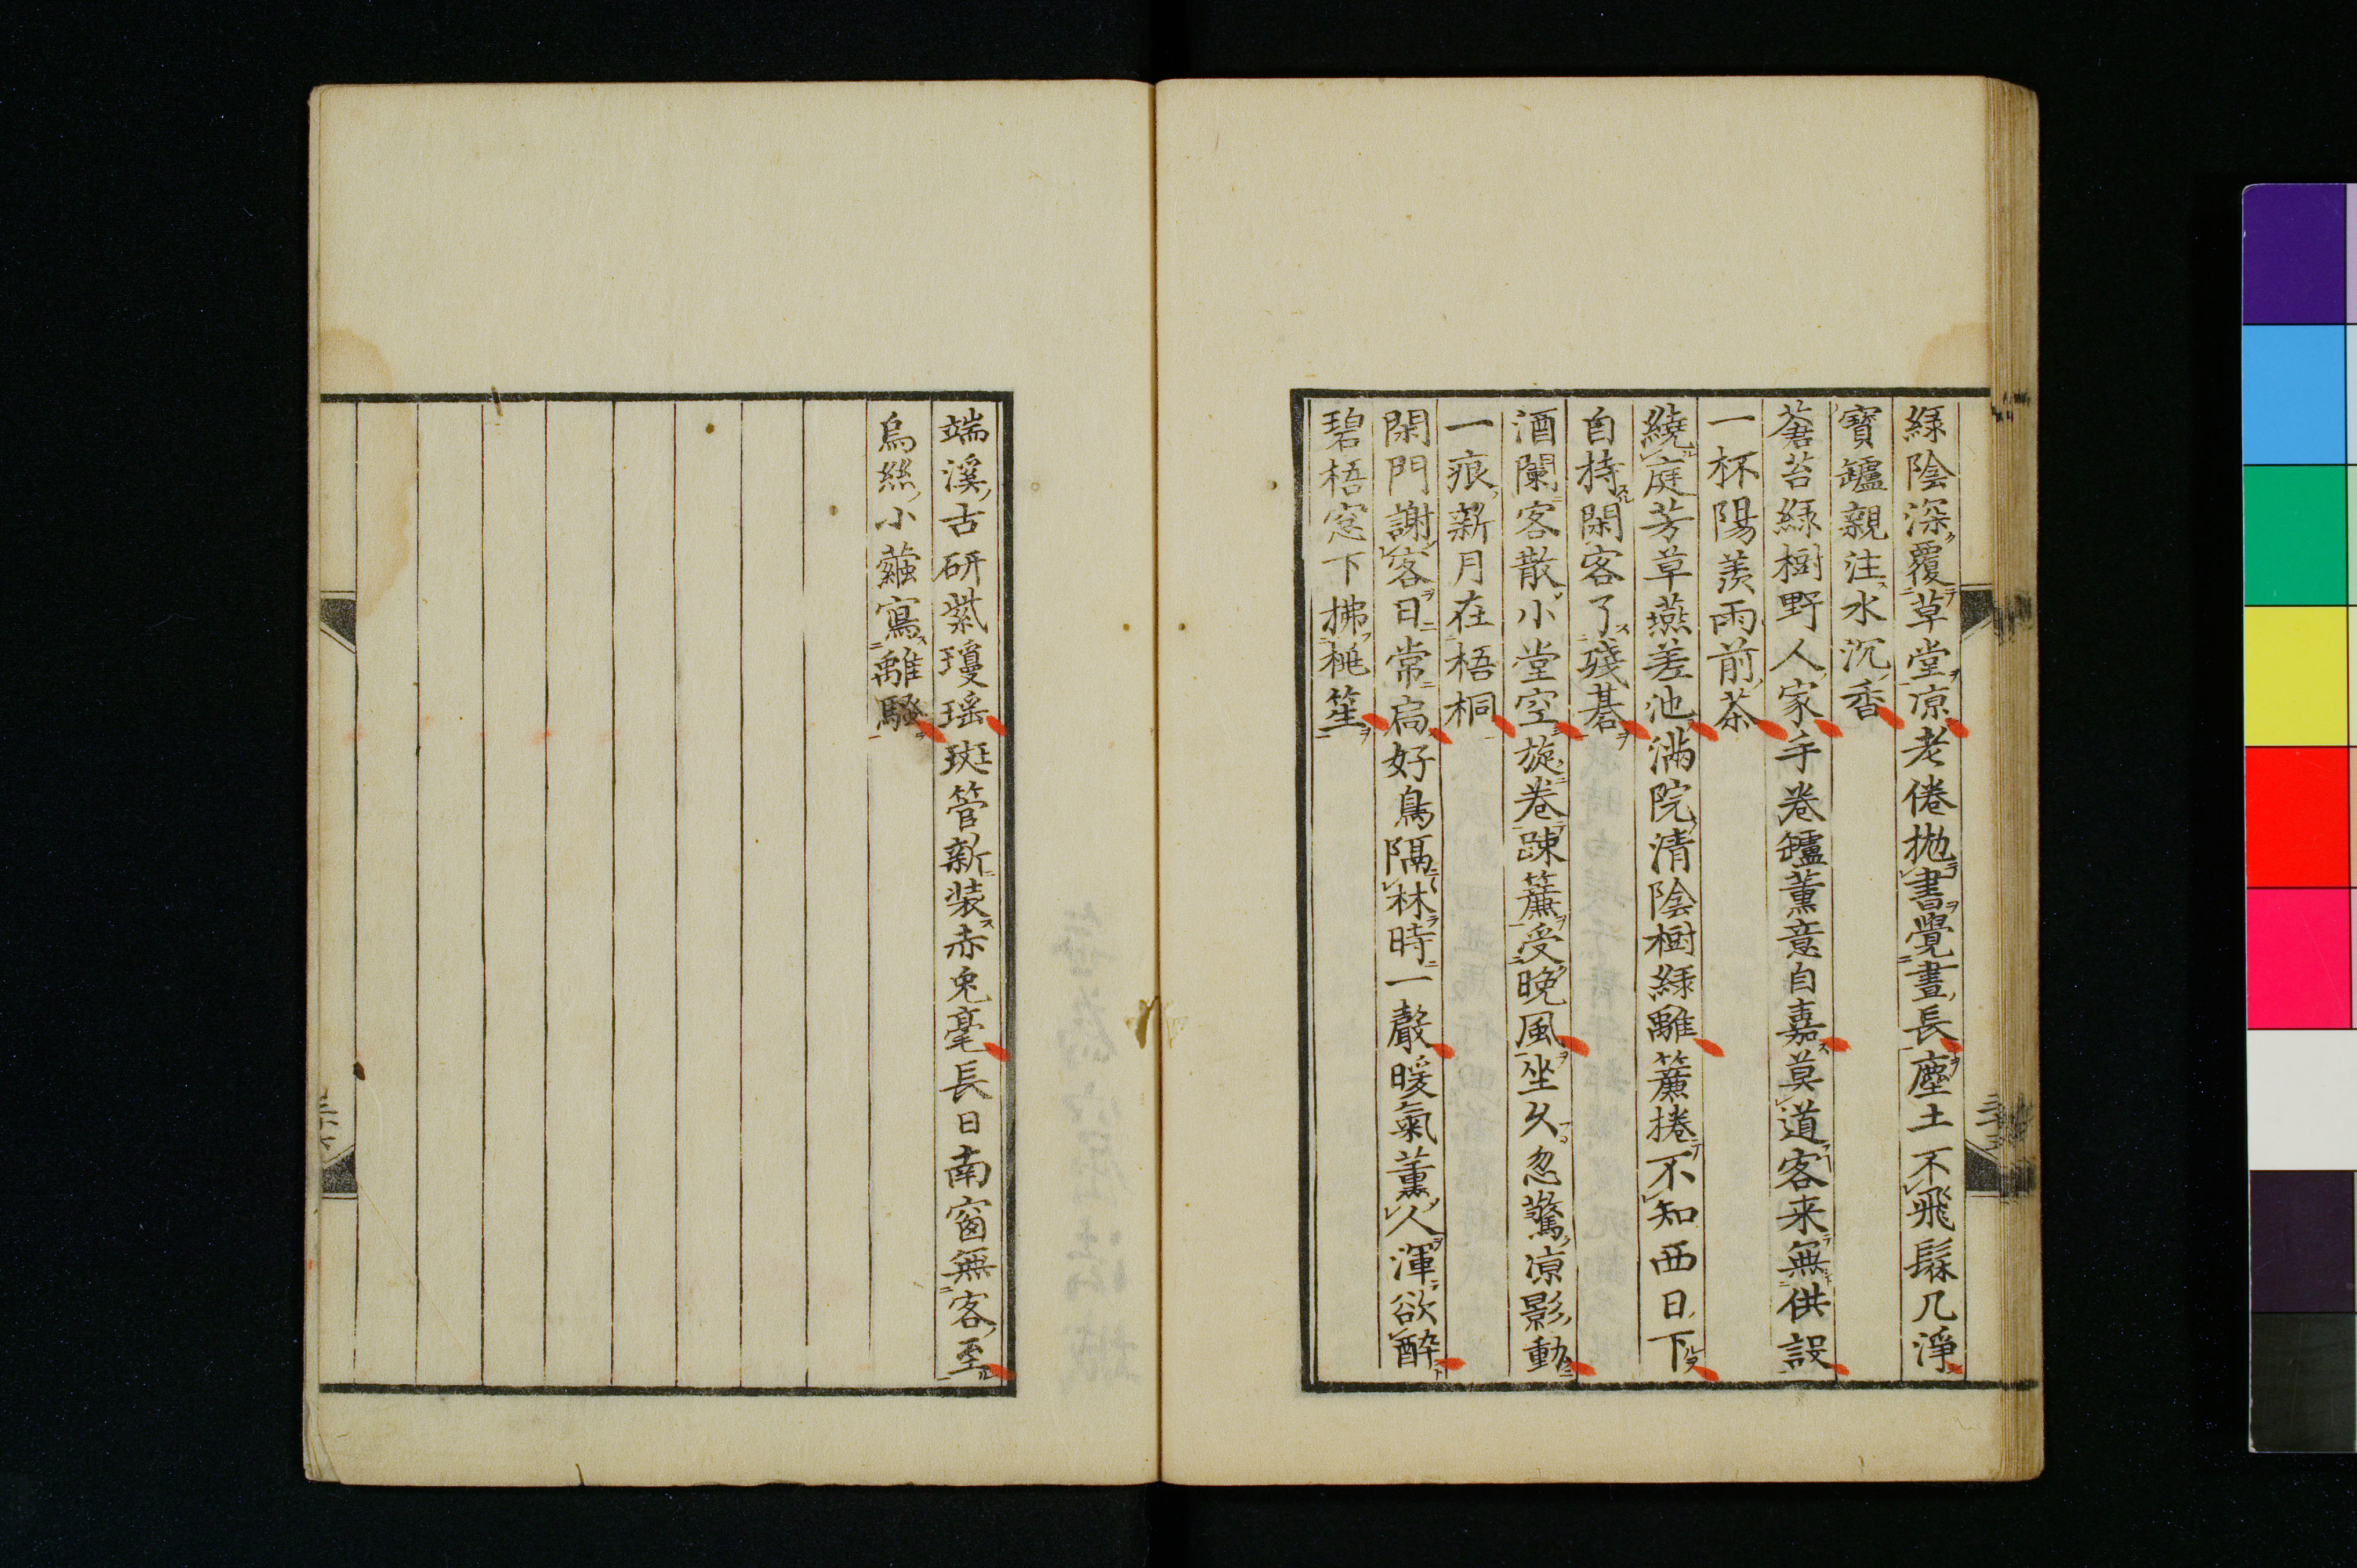 緑陰深覆草堂凉老倦抛書覺晝長塵土不飛髹几淨
寳罏親注水沉香
蒼苔緑樹野人家手卷罏薫意自嘉莫道客来無供設
一杯陽羨雨前茶
繞庭芳草燕差池満院清陰樹緑離簾捲不知西日下
自持閑客了殘碁
酒闌客散小堂空旋卷踈簾受晚風坐久忽驚凉影動
一痕新月在梧桐
閑門謝客日常扃好鳥隔林時一聲暖氣薫人渾欲酔
碧梧窓下拂桃笙
端溪古研紫瓊瑶斑管新装赤兎毫長日南窗無客至
烏絲小繭寫離騒